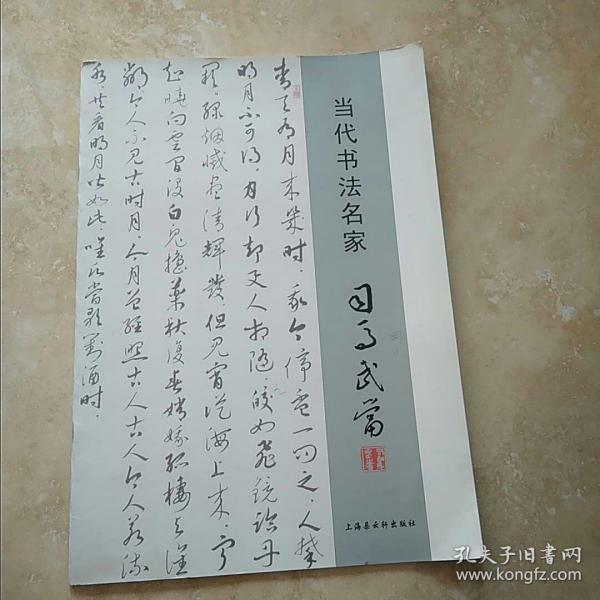 当代书法名家
司马武当
上海朵云轩出版社
青天有月来幾时，我今停杯一问之，人攀
明月不可得，月行却与人相随，皎如飛鏡临丹
阙，绿烟灭尽清輝發，但见宵从海上来，宁
知晓向雲间没，白兔捣藥秋復春，嫦娥孤棲与谁
鄰，今人不见古时月，今月曾经照古人，古人今人若流
水，共看明月皆如此，唯愿当歌對酒时，
孔夫子旧书网
www.kongfz.com